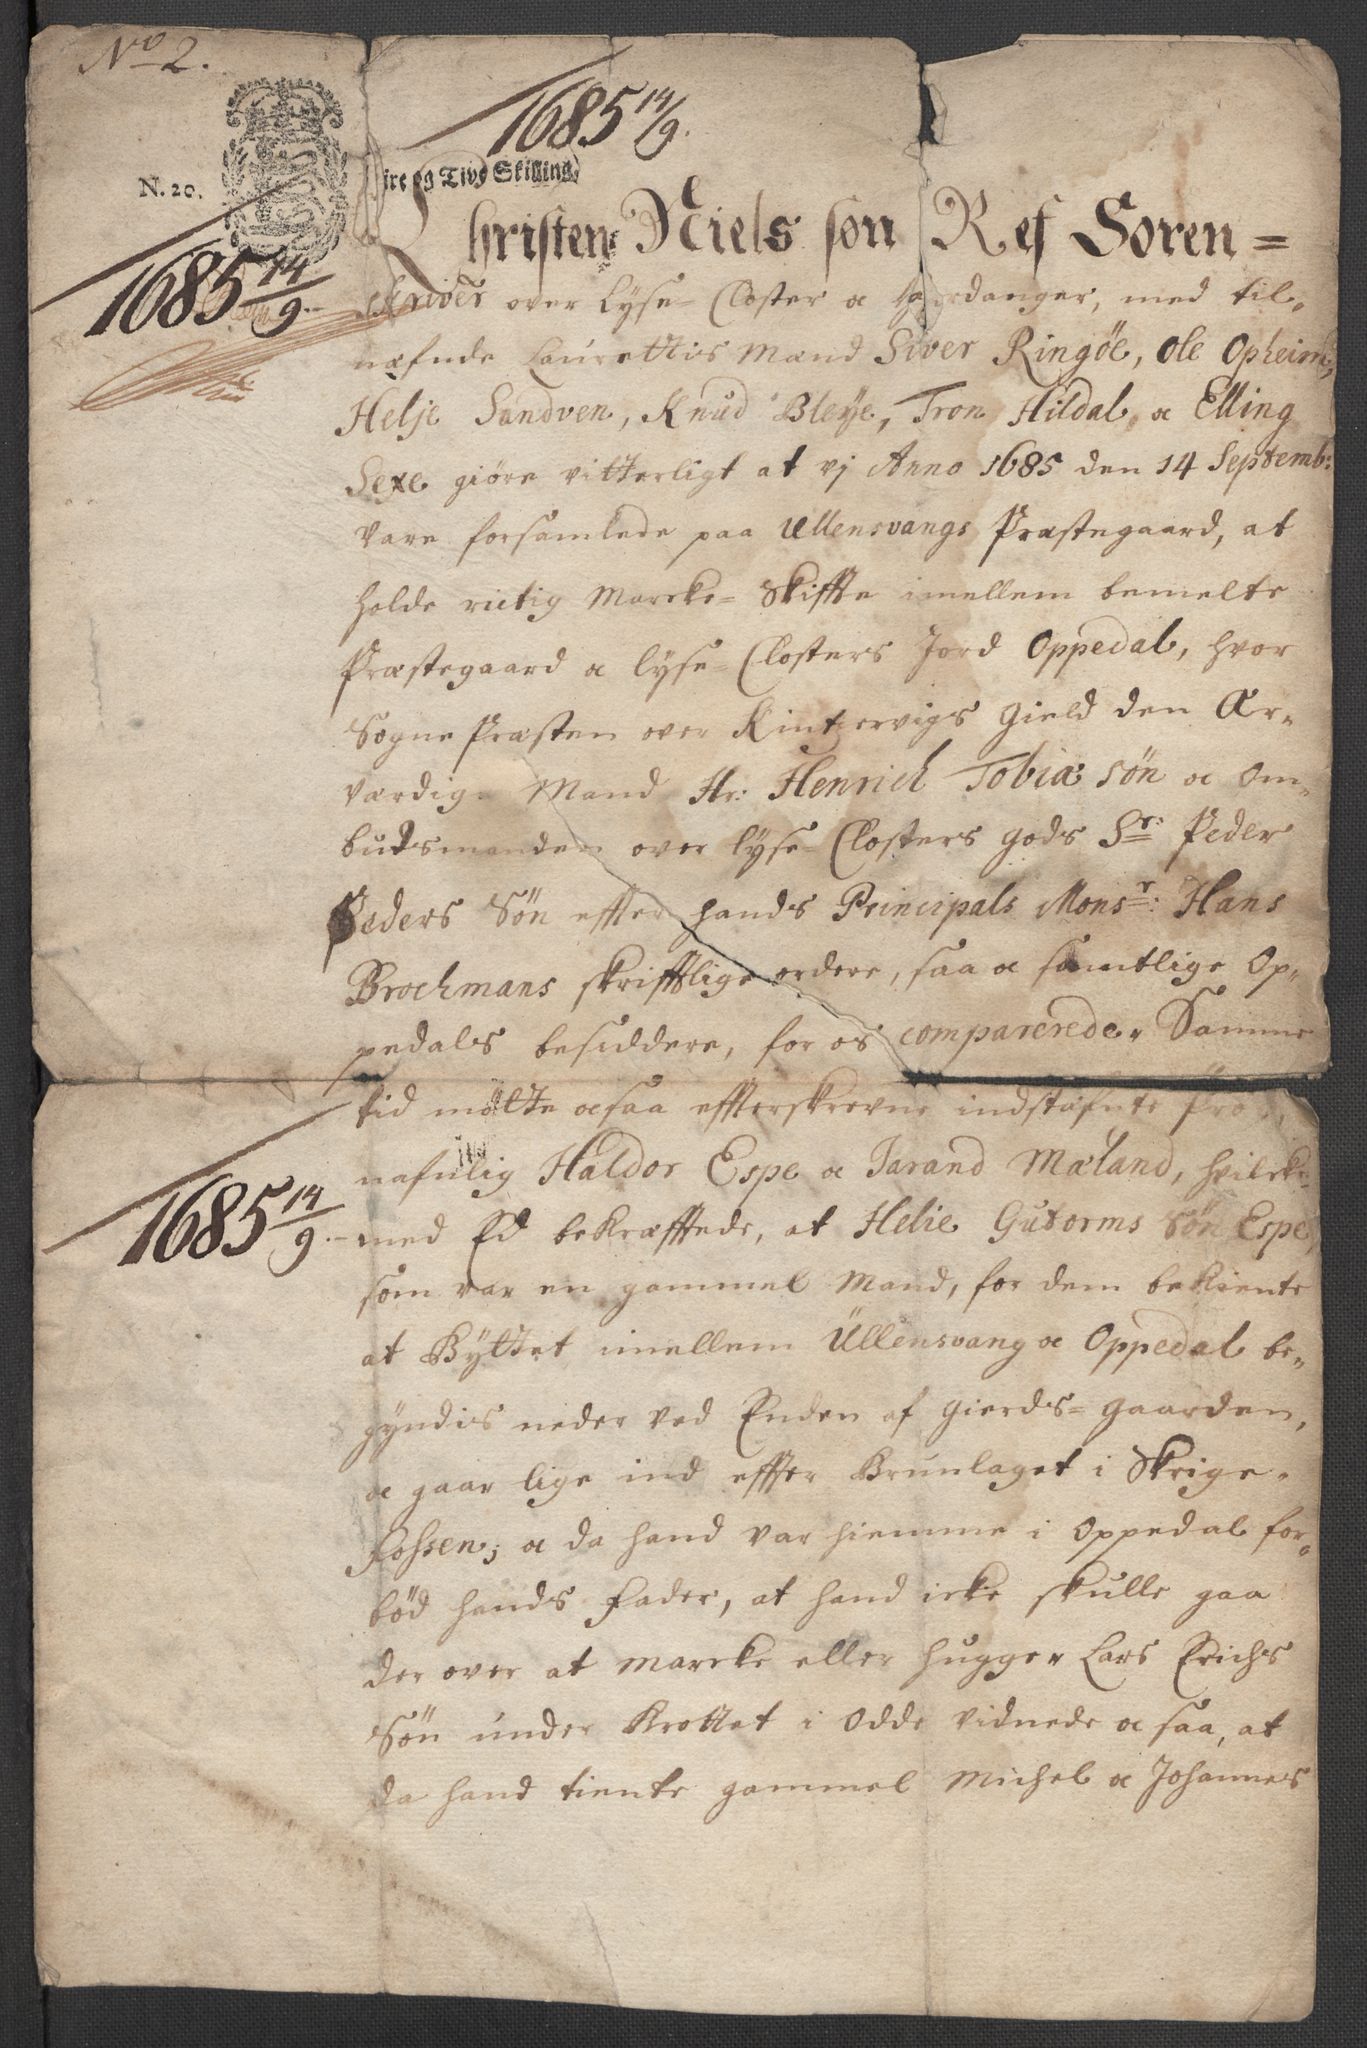 No 2.
1685 14/9.
N. 20.
ire og Tive Skilling
1685 14/9.
Christen Niels søn Ref Soren=
skriver over Lyse=Closter & Hardanger, med til-
næfnde Laurettis Mænd Siver Ringøe, Ole Opheim,
Helje Sandven, Knud Bleye, Tron Hildal, & Elling
Sexe giøre vitterligt at vj Anno 1685 den 14 Septemb:
vare forsamlede paa Ullensvangs Præstegaard, at
holde rictig Marcke=Skiffte imellem bemelte
Præstegaard & Lyse=Closters Jord Oppedal, hvor
Sogne Præsten over Kintzervigs Gield den Ær-
værdige Mand Hr: Henrich Tobiæ søn & Om-
budsmanden over Lyse=Closters gods Sr: Peder
Peders Søn effter hands Principals Monsr: Hans
Brochmans skrifftlige ordere, saa & samtlige Op-
pedals besiddere, for os comparerede. Samme
tid mötte & saa effterskrevne indstæfnte Pro
nafnlig Haldor Espe & Jarand Mæland, hvilcke
1685 14/9.
med Ed bekræfftede, at Helie Gutorms Søn Espe,
som var en gammel Mand, for dem bekiente
at Byttet imellem Üllensvang & Oppedal be-
gyndis neder ved Enden af gierds=gaarden,
& gaar lige ind effter Brunlaget i Skrige-
fossen; & da hand var hiemme i Oppedal for-
bød hands Fader, at hand icke skulle gaa
der over at marcke eller hugge. Lars Erichs
Søn under Krottet i Odde vidnede & saa, at
da hand tiente gammel Michel & Johannes